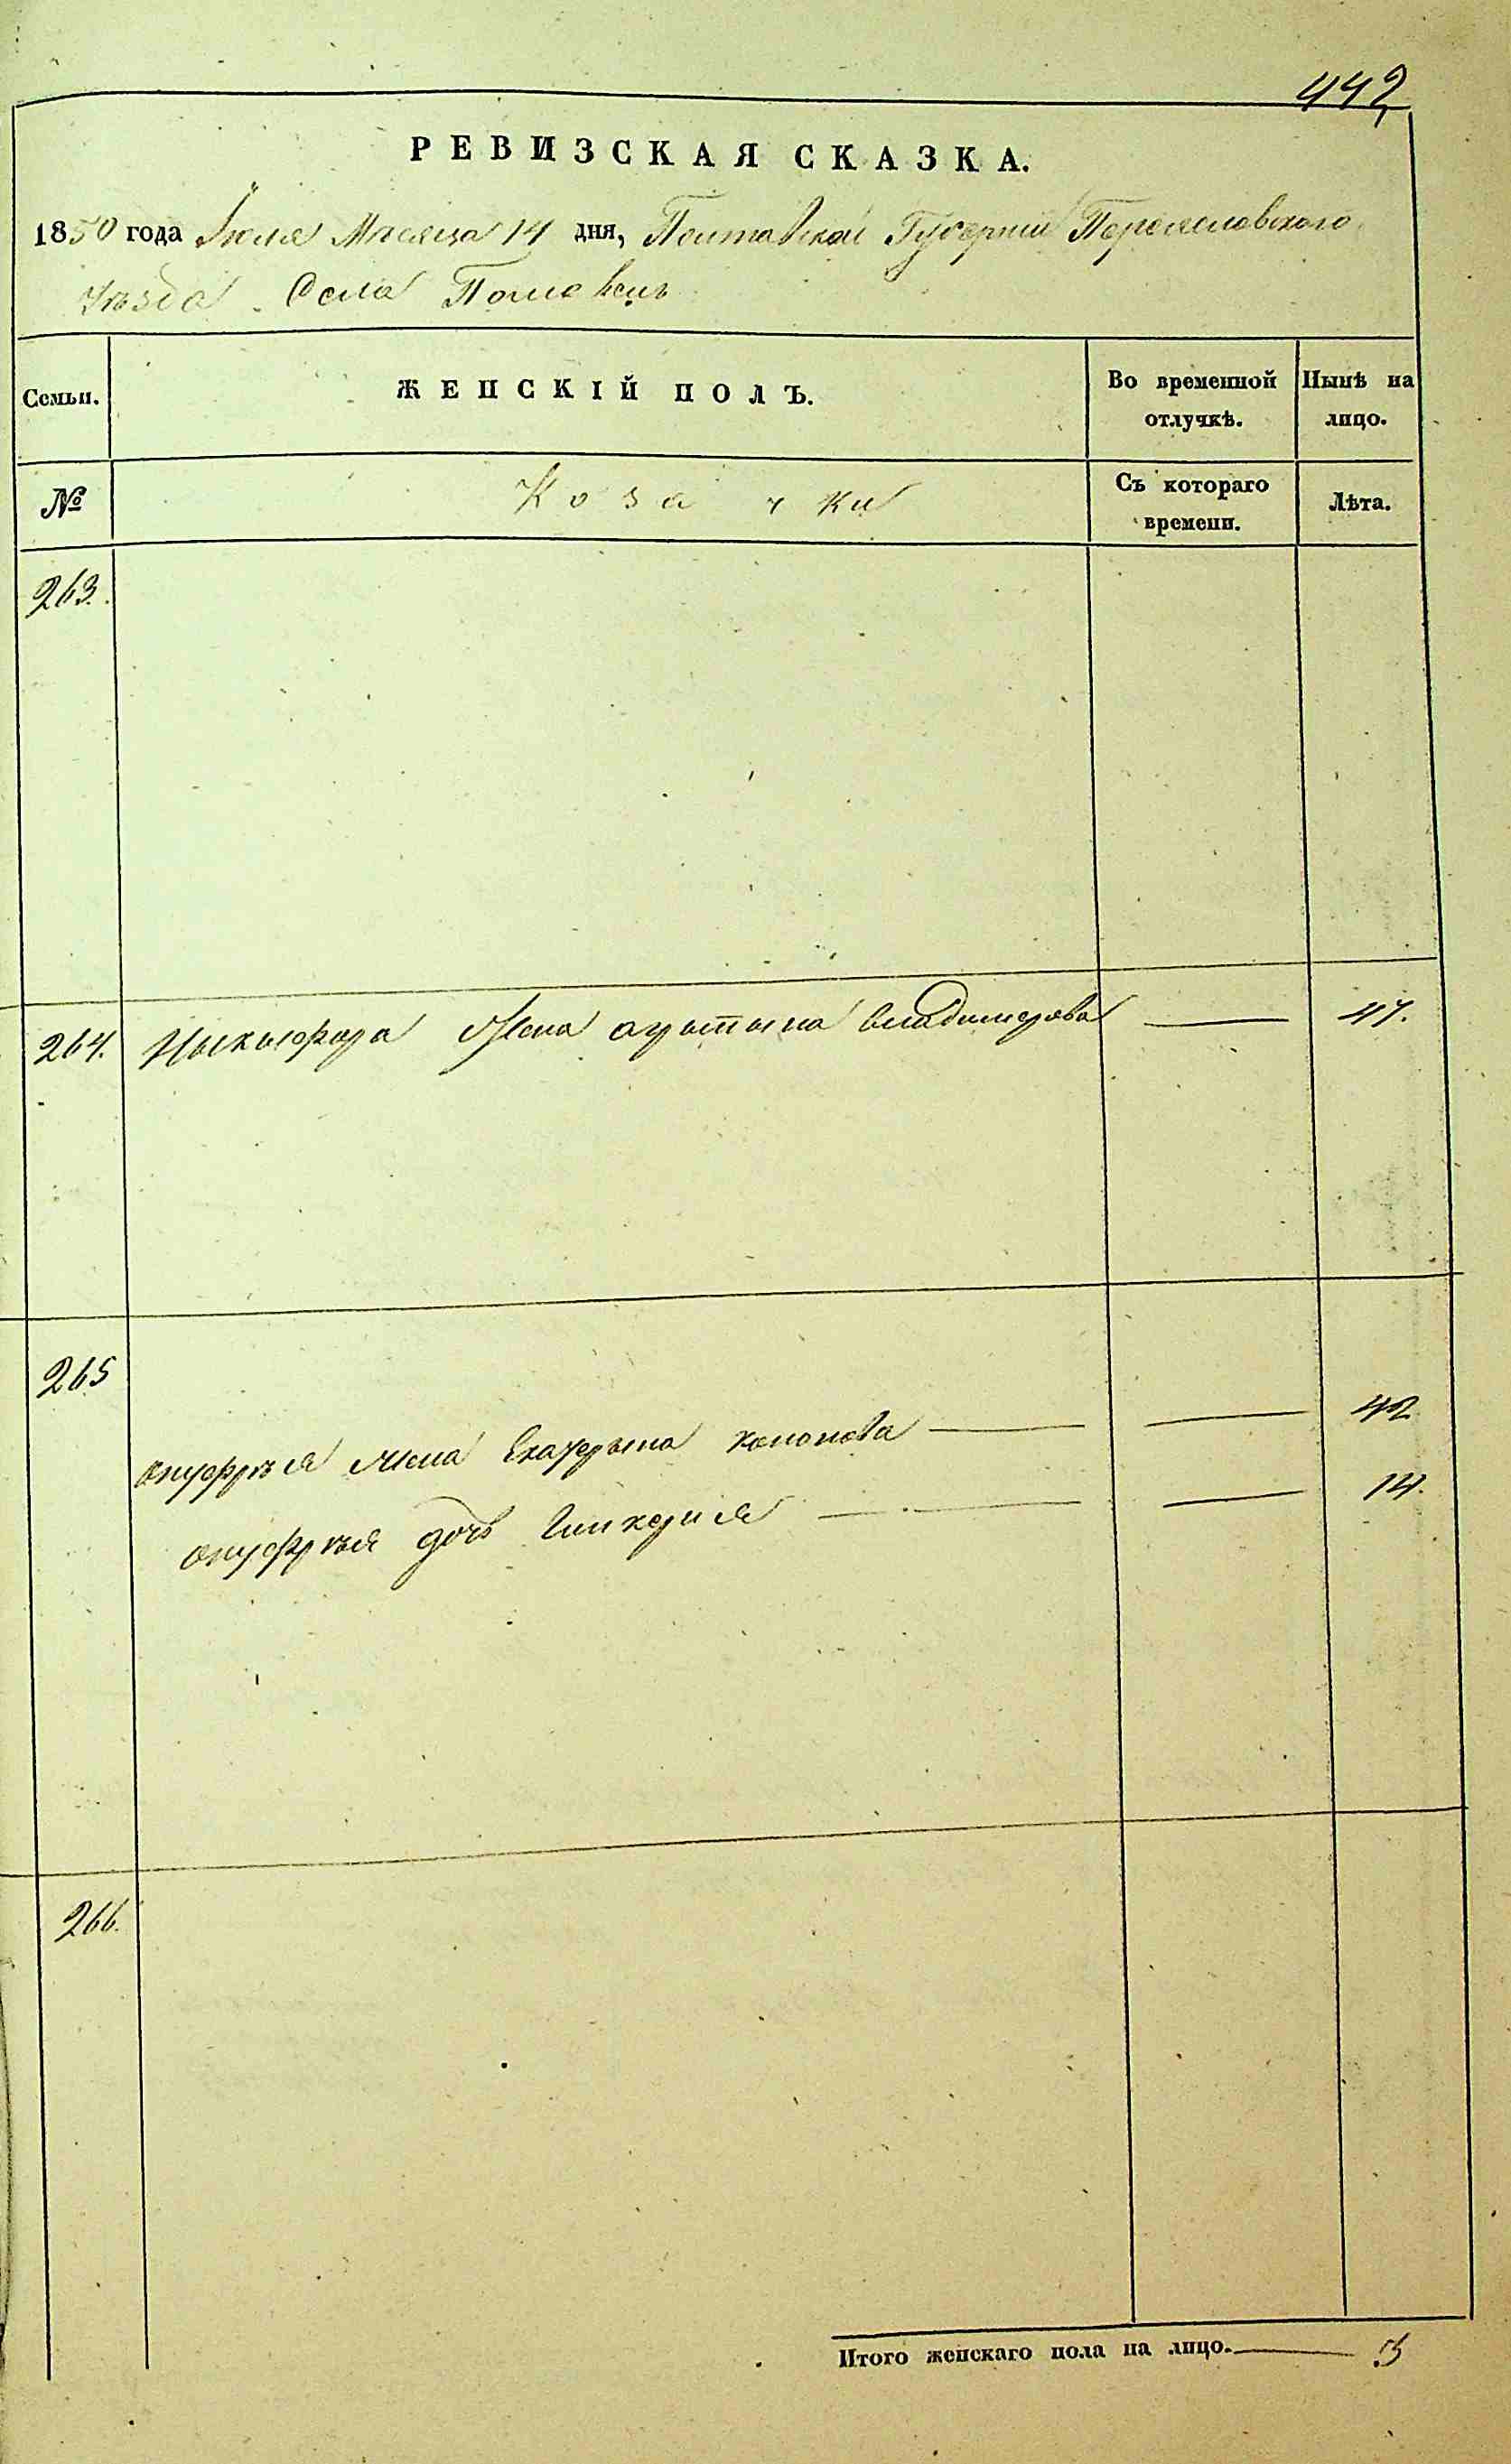 442
РЕВИЗСКАЯ СКАЗКА.
1850 года Іюля Месяца 14 дня, Полтавской Губерніи Переяславского
уѣзда Села Помоклецъ
Семьи. ЖЕНСКІЙ ПОЛЪ. Во временной отлучкѣ. Нынѣ на лицо.
№ Козачки Съ котораго времени. Лѣта.
263.
264. Ныкыфора жена Владимерова — 47.
265
Онуфрѣя жена Екатерына Кононова — — 42
Онуфрѣя дочь Гликерия — — 14.
266.
Итого женскаго пола на лицо. — 3